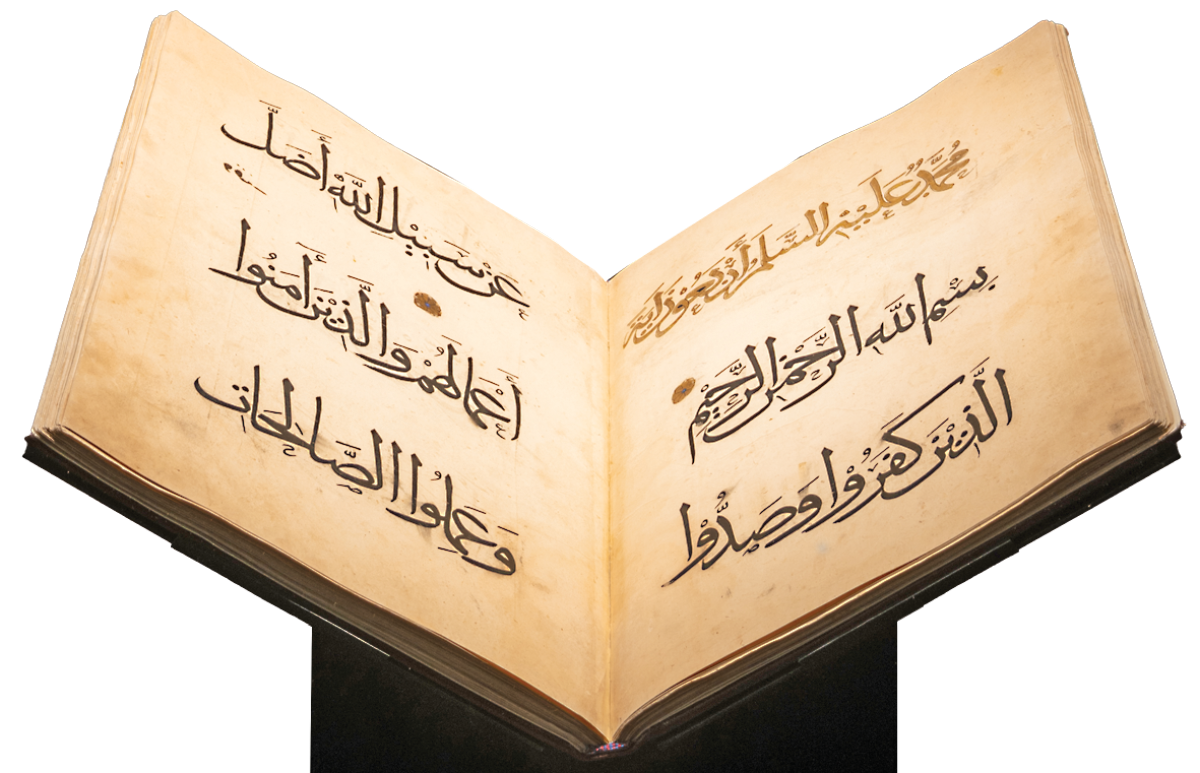 محمد عليه السلم أربعون آية
بِسْمِ اللهِ الرَّحْمٰنِ الرَّحِيْمِ
الَّذِيْنَ كَفَرُوْا وَصَدُّوْا
عَنْ سَبِيْلِ اللهِ أَضَلَّ
أَعْمَالَهُمْ وَالَّذِيْنَ أٰمَنُوْا
وَعَمِلُوا الصَّالِحَاتِ